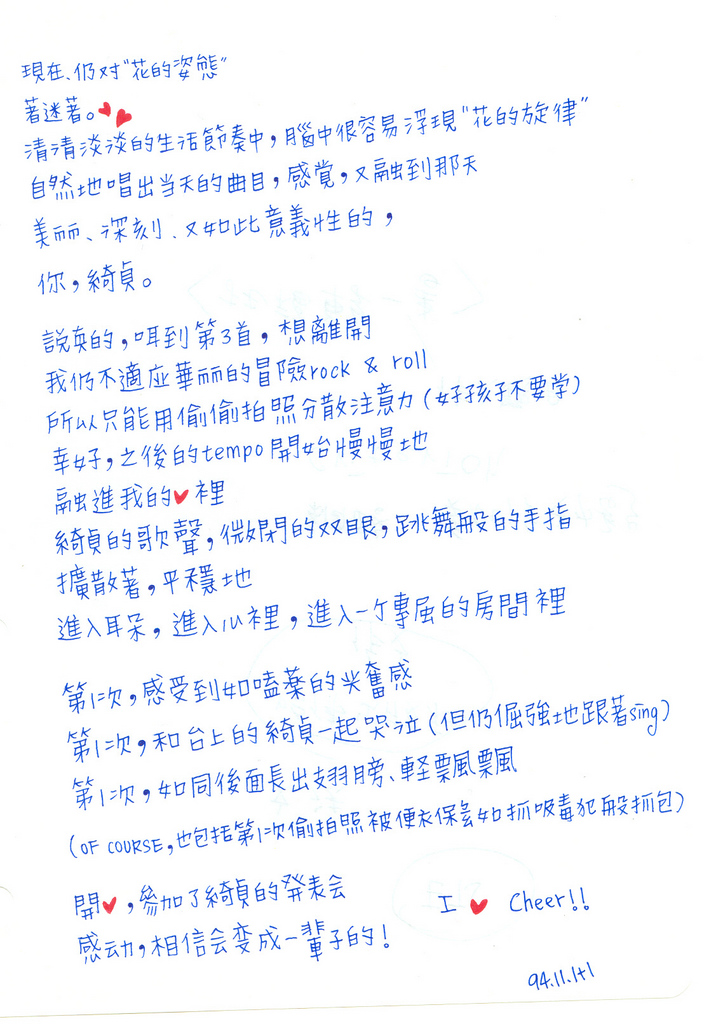 現在、仍对"花的姿態"
著迷著。
清清淡淡的生活節奏中，腦中很容易浮現"花的旋律"
自然地唱出当天的曲目，感覚，又融到那天
美丽、深刻、又如此意義性的，
你，綺貞。
說真的，咡到第3首，想離開
我仍不適应華丽的冒險rock & roll
所以只能用偷偷拍照分散注意力(好孩子不要学)
幸好，之後的tempo開始慢慢地
融進我的♥裡
綺貞的歌聲，微閉的双眼，跳舞般的手指
擴散著，平穩地
進入耳朵，進入心裡，進入一个專屬的房間裡
第1次，感受到如嗑薬的兴奮感
第1次，和台上的綺貞一起哭泣(但仍倔強地跟著sing)
第1次，如同後面長出翅膀、軽飄飄
(OF COURSE，也包括第1次偷拍照被便衣保全如抓吸毒犯般抓包)
開♥，參加了綺貞的発表会
感动，相信会变成一輩子的！
I ♥ Cheer!!
94.11.1+1